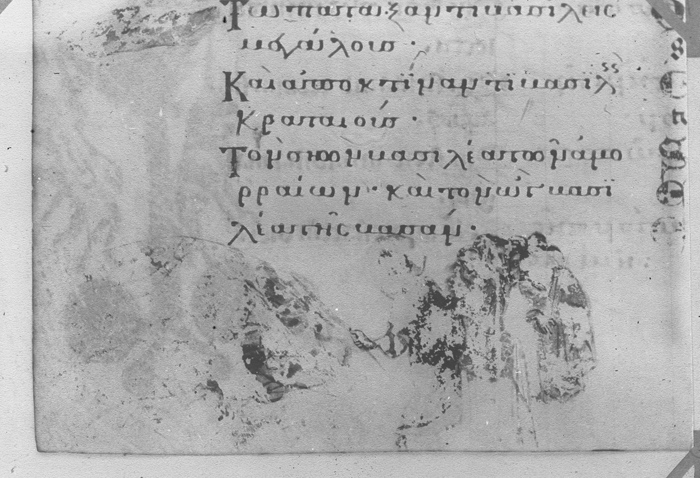 Τῶ πατάξαντι βασιλεῖς
μεγάλους ·
Καὶ ἀποκτίναντι βασιλ
κραταιούς ·
Τὸν σηὼν βασιλέα τῶν ἀμο
ρραίων · καὶ τὸν ὢγ βασι
λέα τῆς βασάν ·